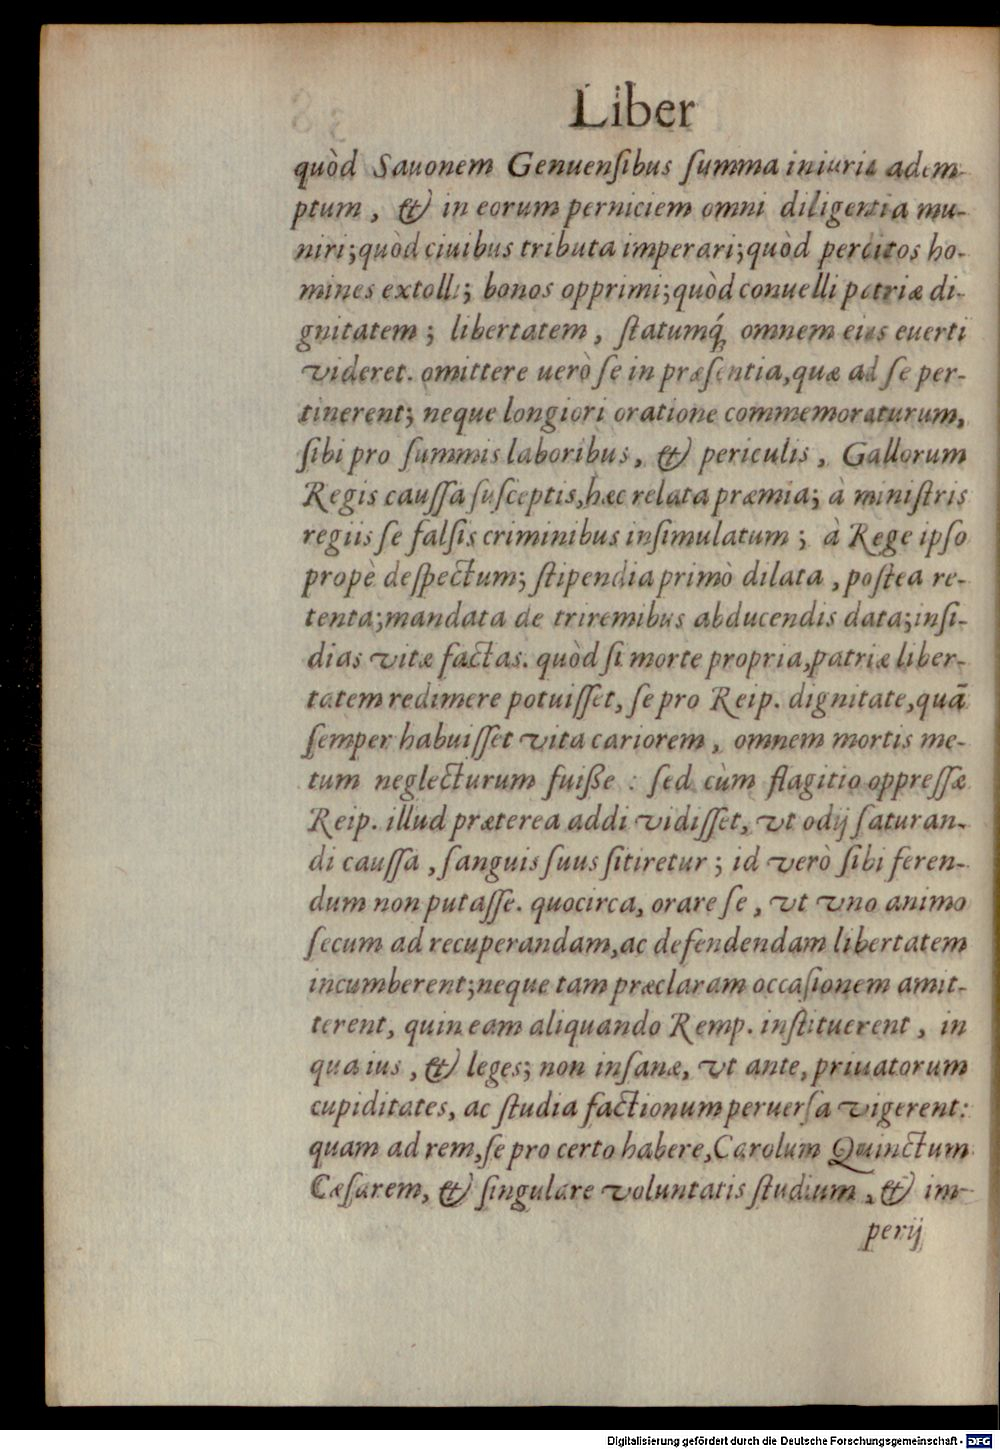 Liber
quòd Sauonem Genuenſibus ſumma iniuria adem-
ptum, & in eorum perniciem omni diligentia mu-
niri; quòd ciuibus tributa imperari; quòd perditos ho-
mines extolli; bonos opprimi; quòd conuelli patriæ di-
gnitatem; libertatem, ſtatumq́; omnem eius euerti
videret. omittere uerò ſe in præſentia, quæ ad ſe per-
tinerent; neque longiori oratione commemoraturum,
ſibi pro ſummis laboribus, & periculis, Gallorum
Regis cauſſa ſuſceptis, hæc relata præmia; à miniſtris
regiis ſe falſis criminibus inſimulatum; à Rege ipſo
propè deſpectum; ſtipendia primò dilata, poſtea re-
tenta; mandata de triremibus abducendis data; inſi-
dias vitæ factas. quòd ſi morte propria, patriæ liber-
tatem redimere potuiſſet, ſe pro Reip. dignitate, quā
ſemper habuiſſet vita cariorem, omnem mortis me-
tum neglecturum fuiße: ſed cùm flagitio oppreſſæ
Reip. illud præterea addi vidiſſet, vt odij ſaturan-
di cauſſa, ſanguis ſuus ſitiretur; id verò ſibi feren-
dum non putaſſe. quocirca, orare ſe, vt vno animo
ſecum ad recuperandam, ac defendendam libertatem
incumberent; neque tam præclaram occaſionem amit-
terent, quin eam aliquando Remp. inſtituerent, in
qua ius, & leges; non inſanæ, vt ante, priuatorum
cupiditates, ac ſtudia factionum peruerſa vigerent:
quam ad rem, ſe pro certo habere, Carolum Quinctum
Cæſarem, & ſingulare voluntatis ſtudium, & im-
perij
Digitalisierung gefördert durch die Deutsche Forschungsgemeinschaft - DFG